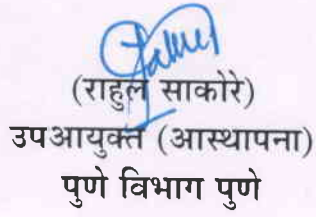 (राहुल साकोरे)
उपआयुक्त (आस्थापना)
पुणे विभाग पुणे